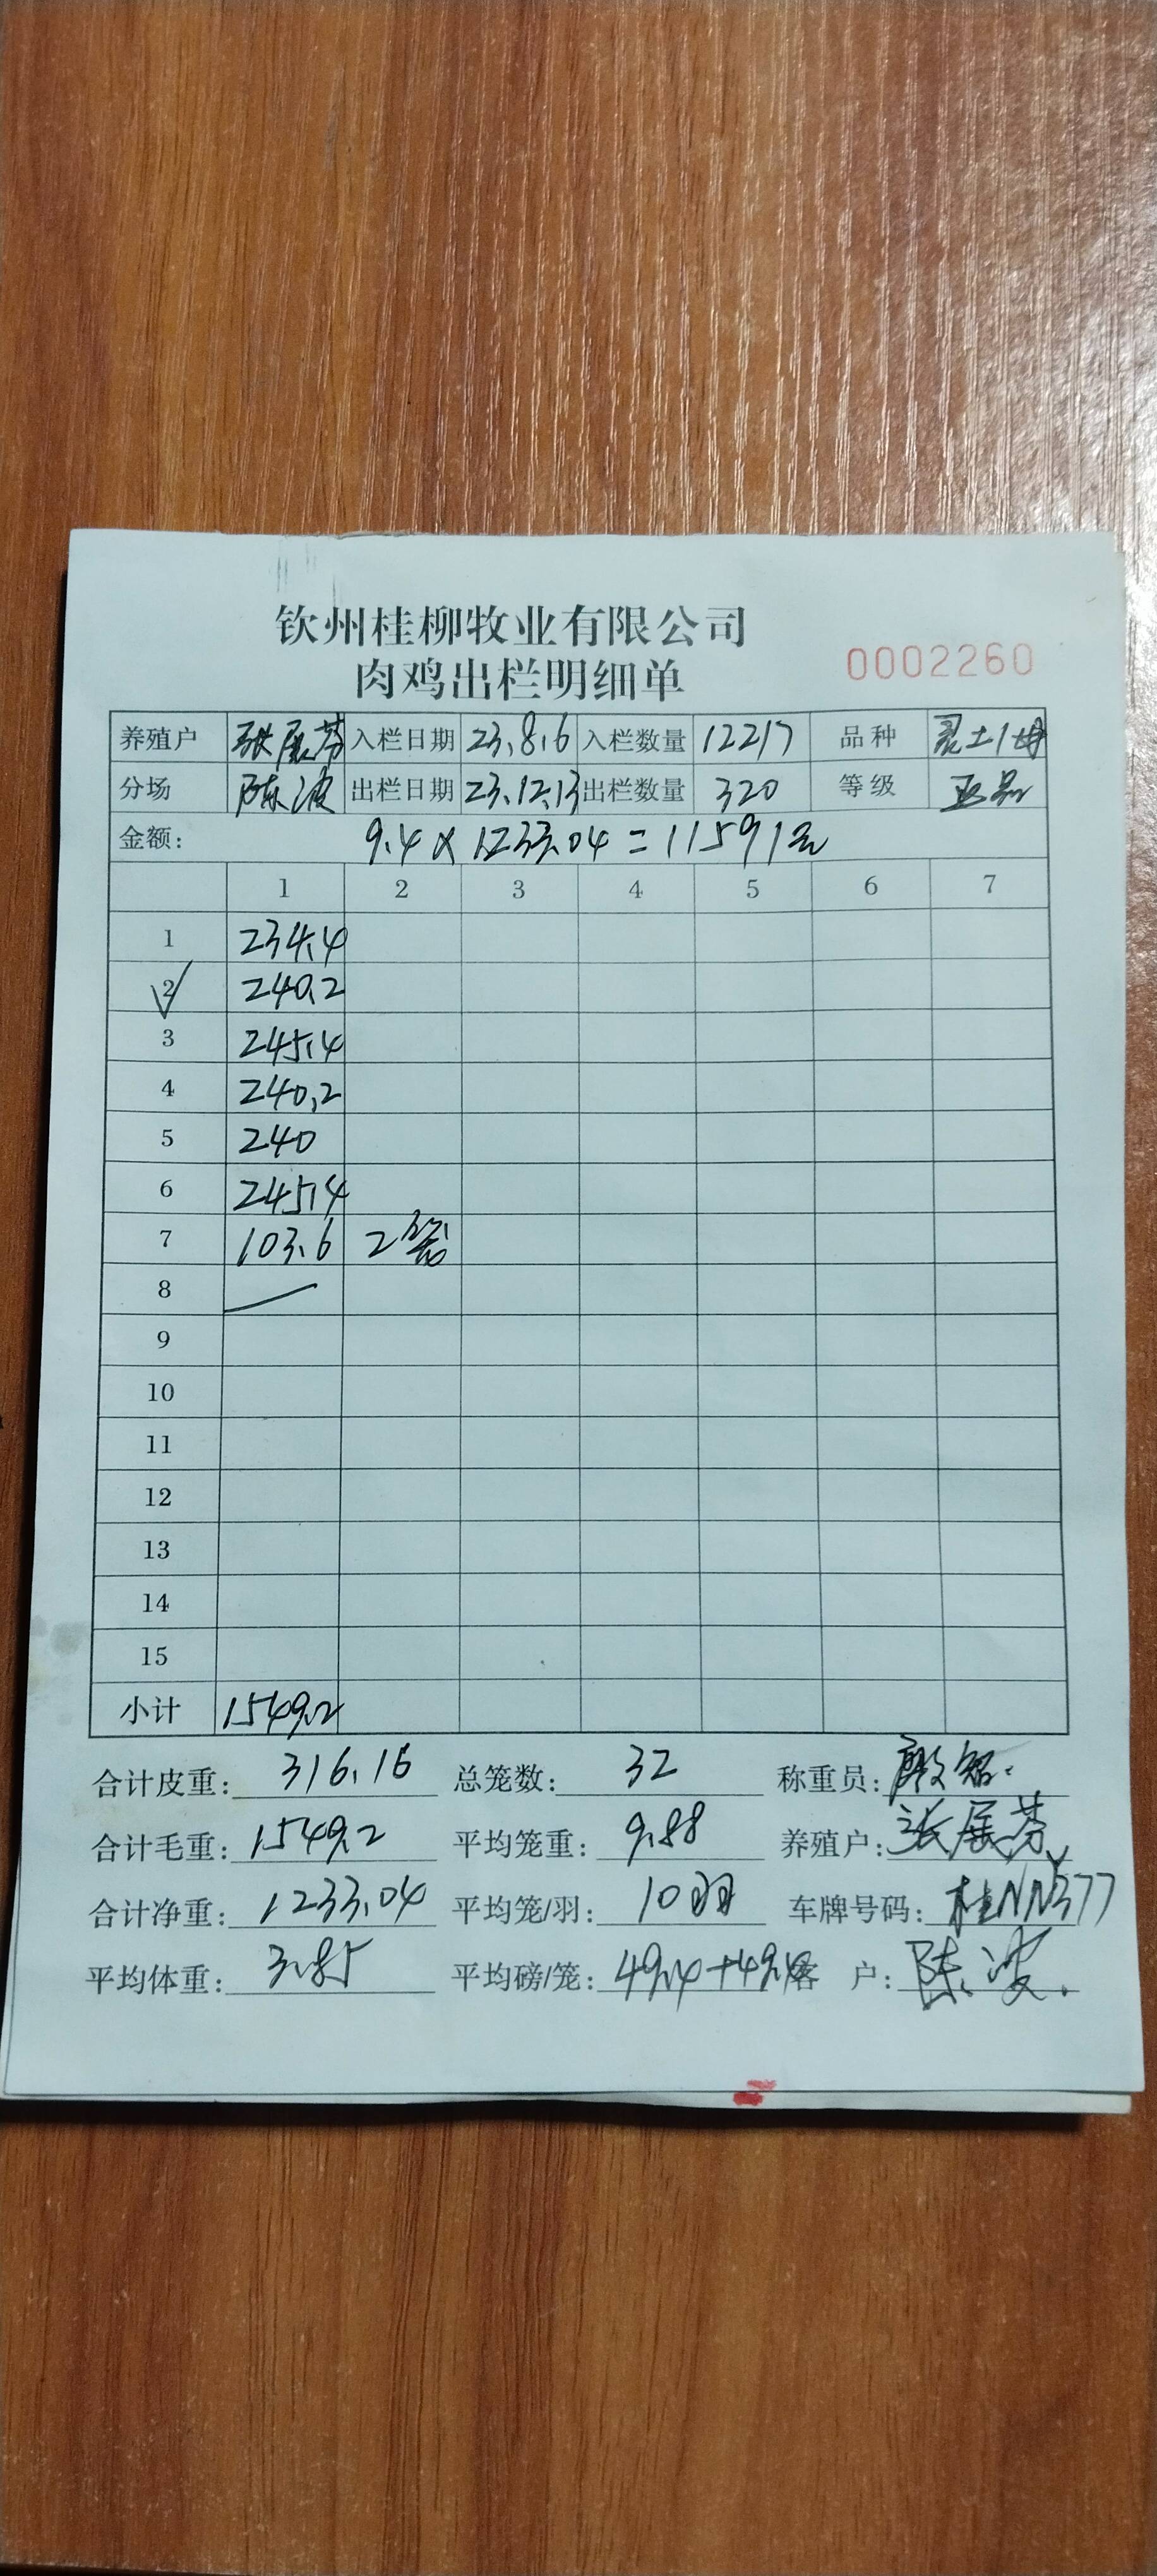 钦州桂柳牧业有限公司
肉鸡出栏明细单 0002260
养殖户 张展芬 入栏日期 23.8.6 入栏数量 12217 品种 灵土1母
分场 陈波 出栏日期 23.12.13 出栏数量 320 等级 正品
金额: 9.4×1233.04=11591元
1 2 3 4 5 6 7
1 234.4
2 240.2
3 245.4
4 240.2
5 240
6 245.4
7 103.6 2笼
8
9
10
11
12
13
14
15
小计 1549.2
合计皮重: 316.16 总笼数: 32 称重员:
合计毛重: 1549.2 平均笼重: 9.88 养殖户: 张展芬
合计净重: 1233.04 平均笼/羽: 10羽 车牌号码:
平均体重: 3.85 平均磅/笼: 49.4+49.4 客 户: 陈波.